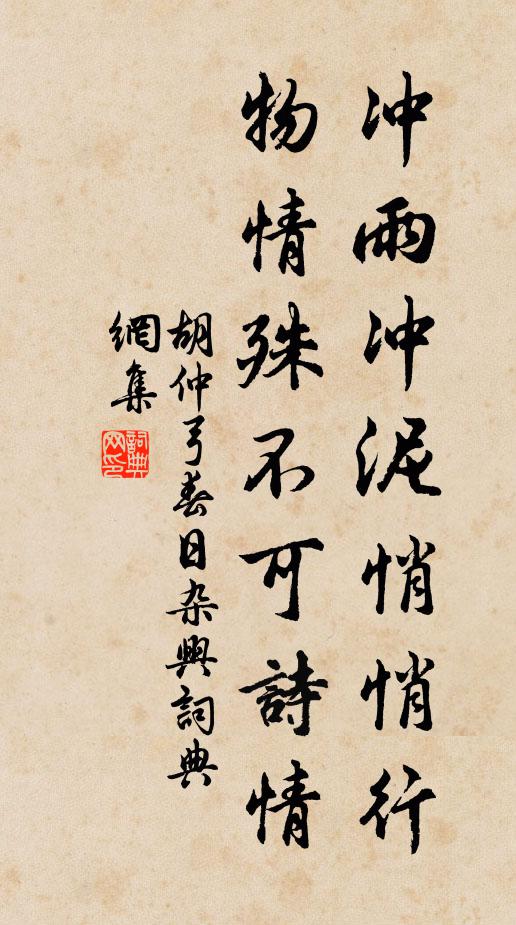 冲雨冲泥悄悄行
物情殊不可詩情
胡仲弓春日杂興詞典
網集
詞典
网印